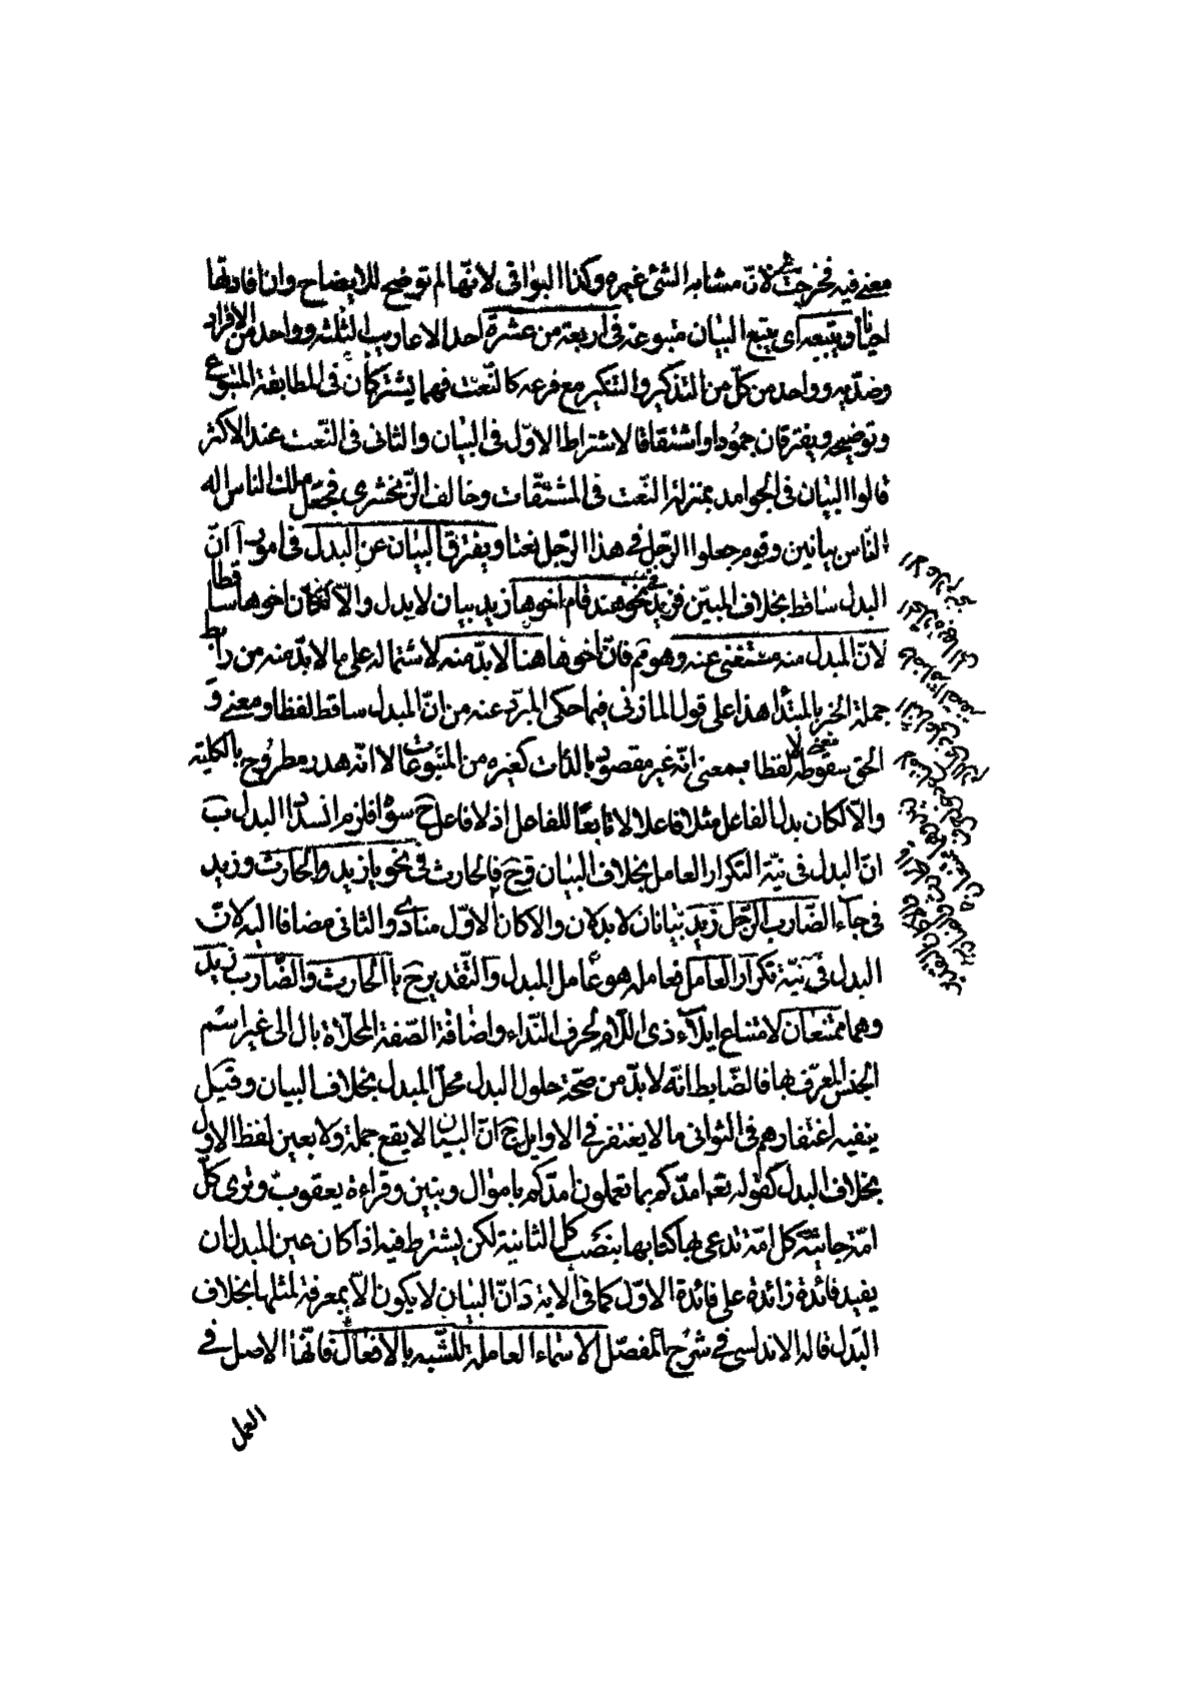 معنى فيه فخرجت لانّ مشابه الشئ غيره وكذا البواقى لانّها لم توضح للايضاح وان افادتها
احيانا ويتبعه اى يتبع البيان متبوعه فى اربعة من عشرة احد الاعاريب الثلثه وواحد من الافراد
وضدّيه وواحد من كلّ من التذكير والتنكير مع فرعه كالنّعت فهما يشتركان فى المطابقة المتبوع
وتوضيحه ويفترقان جمُودا واشتقاقا لاشتراط الاوّل فى البيان والثانى فى النّعت عند الاكثر
قالوا البيان فى الجوامد بمنزلة النّعت فى المشتقّات وخالف الزّمخشرى فجعل ملك الناس اله
النّاس بيانين وقوم جعلوا الرّجل فى هذا الرّجل نعتا ويفترق البيان عن البدل فى امور آ انّ
البدل ساقط بخلاف المبيّن فزيد فى نحو هند قام اخوها زيد بيان لا بدل والّا لكان اخوها ساقطا
لانّ المبدل منه مستغنى عنه وهو ثم فانّ اخوها هنا لابدّ منه لاشتماله على ما لابدّ منه من رابط
جملة الخبر بالمبتدأ هذا على قول المازنى فيما حكى المبرّد عنه من انّ المبدل ساقط لفظا ومعنى و
الحق سقوطه معنى لا لفظا بمعنى انّه غير مقصود بالذات كغيره من المتبوعات لا انّه هدر مطروح بالكليّة
والّا لكان بدل الفاعل مثلا فاعلا لا تابعًا للفاعل اذ لا فاعل ح سواه فلزم انسداد البدل ب
انّ البدل فى نيّة التكرار العامل بخلاف البيان وح فالحارث فى نحو يا زيد والحارث وزيد
فى جاء الضّارب الرّجل زيد بيانان لا بدلان والا كان الاوّل منادى والثانى مضافا اليه لانّ
البدل فى نيّة تكرار العامل فعامله هو عامل المبدل والتّقدير ح يا الحارث والضّارب زيد
وهما ممتنعان لامتناع ايلاء ذى اللّام لحرف النّداء واضافة الصّفة المحلّاة بال الى غير اسم
الجنس المعرّف بها فالضّابط انّه لابدّ من صحّة حلول البدل محلّ المبدل بخلاف البيان وقيل
ينفيه اغتفارهم فى الثوانى ما لا يغتفر فى الاوايل ج انّ البيان لا يقع جملة ولا بعين لفظ الاول
بخلاف البدل كقوله تعہ امدّكم بما تعملون امدّكم باموال وبنين وقراءة يعقوب وترى كلّ
امّة جاثية كل امّة تدعى بها كتابها بنصب كل الثانية لكن يشترط فيه اذا كان عين المبدل ان
يفيد فائدة زائدة على فائدة الاوّل كما فى الاية د انّ البيان لا يكون الّا بمعرفة لمثلها بخلاف
البَدل قاله الاندلسى فى شرح المفصّل الاسماء العاملة للشّبه بالافعال فانّها الاصل فى
العمل